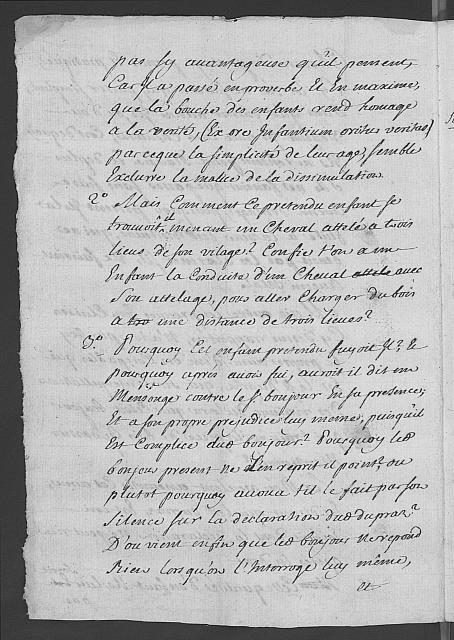 pas sy avantageuse qu'il pensent,
Car il a passé en proverbe Et En maxime,
que la bouche des enfants rend homage
a la verité, (Ex ore Infantium oritur veritas)
parceque la simplicité de leur age, semble
Exclurre la malice de la dissimulation.
2.º Mais Comment Ce pretendu enfant se
trouvoit il menant un Cheval attelé a trois
lieus de son vilage? Confie t'on a un
Enfant la Conduite d'un Cheval attelé avec
son attelage, pour aller Charger du bois
a tro une distance de trois lieues?
3.º Pourquoy Cet enfant pretendu fuyoit Il? Et
pourquoy aprés avoir fui, auroit il dit un
Mensonge contre le s.r bonjour En sa presence;
Et a son propre prejudice luy meme, puisquil
Est Complice dud bonjour? Pourquoy led
bonjour present ne l'en reprit il point, ou
plutot pourquoy avoua til le fait par son
silence sur la declaration dud duprax?
D'ou vient enfin que led bonjour ne repond
Rien lorsqu'on l'Interroge luy même,
et